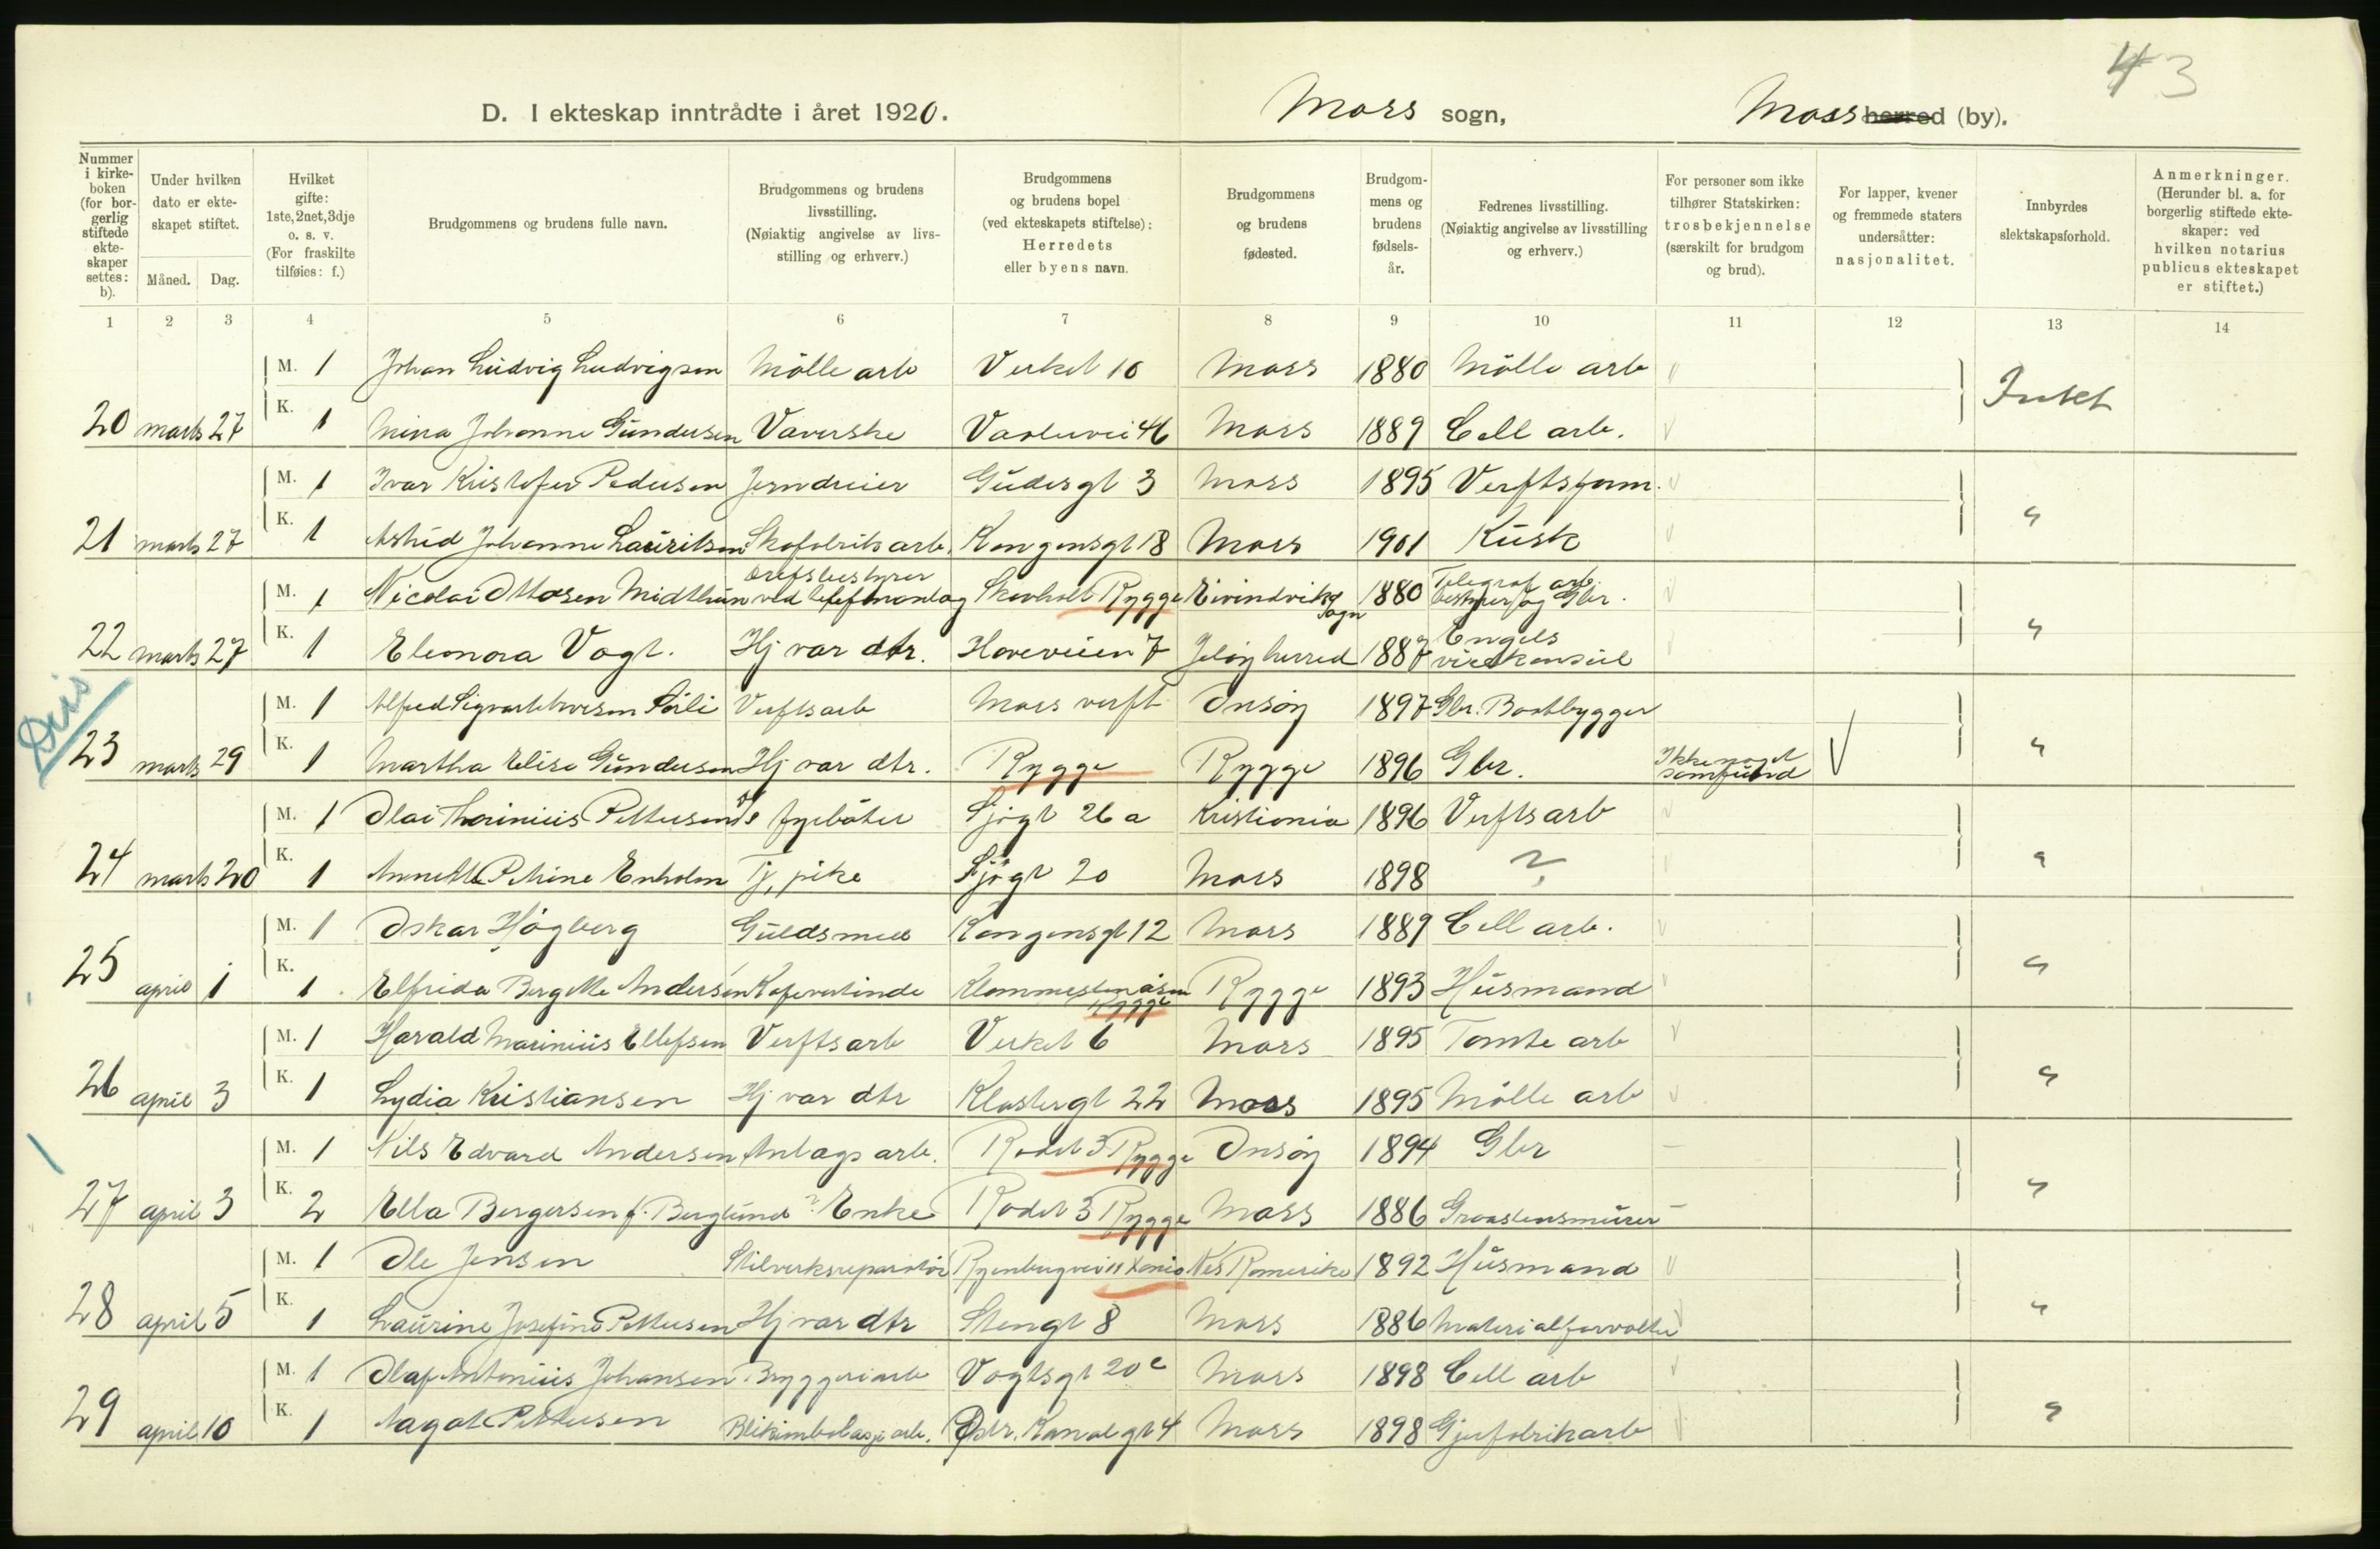 43
D. I ekteskap inntrådte i året 1920. Moss sogn, Moss herred (by).
Nummer i kirke-boken (for bor-gerlig stiftede ekte-skaper settes: b).
Under hvilken dato er ekte-skapet stiftet.
Måned. Dag.
Hvilket gifte: 1ste, 2net, 3dje o. s. v. (For fraskilte tilføies: f.)
Brudgommens og brudens fulle navn.
Brudgommens og brudens livsstilling. (Nøiaktig angivelse av livs-stilling og erhverv.)
Brudgommens og brudens bopel (ved ekteskapets stiftelse): Herredets eller byens navn.
Brudgommens og brudens fødested.
Brudgom-mens og brudens fødsels-år.
Fedrenes livsstilling. (Nøiaktig angivelse av livsstilling og erhverv.)
For personer som ikke tilhører Statskirken: trosbekjennelse (særskilt for brudgom og brud).
For lapper, kvener og fremmede staters undersåtter: nasjonalitet.
Innbyrdes slektskapsforhold.
Anmerkninger. (Herunder bl. a. for borgerlig stiftede ekte-skaper: ved hvilken notarius publicus ekteskapet er stiftet.)
1 2 3 4 5 6 7 8 9 10 11 12 13 14
M. 1 Johan Ludvig Ludvigsen Mölle arb Verket 10 Moss 1880 Mölle arb
20 marts 27 K. 1 Mina Johanne Gundersen Væverske Varlevei 46 Moss 1889 Cell arb. Intet
M. 1 Ivar Kristofer Pedersen Jerndreier Gudesgt 3 Moss 1895 Verftsform.
21 marts 27 K. 1 Astrid Johanne Lauritsen Skofabrikarb. Kongensgt 18 Moss 1901 Kusk "
M. 1 Nicolai Ottosen Midthun ved telefonanlæg Skovholt Rygge Eivindvik Sogn 1880 Telegraf arb. bestyrer og Gbr.
22 marts 27 K. 1 Eleonora Vogt. Hj vær dtr. Høieveien 7 Jeløy herred 1887 Engels visekonsul "
M. 1 Alfred Sigvart Sørli Verftsarb Moss verft Onsøy 1897 Gbr. Baatbygger
Diss
23 marts 29 K. 1 Martha Elise Gundersen Hj vær dtr. Rygge Rygge 1896 Gbr. Ikke noget samfund "
M. 1 Olai Thorinius Pettersen fyrböter Sjøgt 26 a Kristiania 1896 Verftsarb
24 marts 20 K. 1 Annette Petrine Enholm Tj. pike Sjøgt 20 Moss 1898 ? "
M. 1 Oskar Högberg Guldsmed Kongensgt 12 Moss 1889 Cell arb.
25 april 1 K. 1 Elfrida Bergitte Andersen Kafevertinde Klommestenåsen Rygge Rygge 1893 Husmand "
M. 1 Harald Marinius Ellefsen Verftsarb Verket 6 Moss 1895 Tomte arb
26 april 3 K. 1 Lydia Kristiansen Hj vær dtr Klostergt 22 Moss 1895 Mölle arb "
M. 1 Nils Edvard Andersen Anlægs arb. Rodet 3 Rygge Onsøy 1894 Gbr -
27 april 3 K. 2 Ella Bergersen f. Berglund Enke Rodet 3 Rygge Moss 1886 Graastensmurer - "
M. 1 Ole Jensen Stilverksreparatør Ryenbergvei 11 Xania Nes Romerike 1892 Husmand
28 april 5 K. 1 Laurine Josefine Pettersen Hj vær dtr Stengt 8 Moss 1886 Materialforvalter "
M. 1 Olaf Antonius Johansen Bryggeriarb Vogtsgt 20 c Moss 1898 Cell arb
29 april 10 K. 1 Aagot Pettersen Blikemballasje arb. Østr. Kanalgt 4 Moss 1898 Gjerfabrikarb "